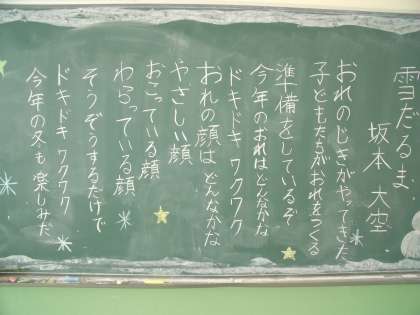 雪だるま
坂本 大空
おれのじきがやってきた
子どもたちがおれをつくる
準備をしているぞ
今年のおれはどんなかな
ドキドキ ワクワク
おれの顔は どんなかな
やさしい顔
おこっている顔
わらっている顔
そうぞうするだけで
ドキドキ ワクワク
今年の冬も楽しみだ